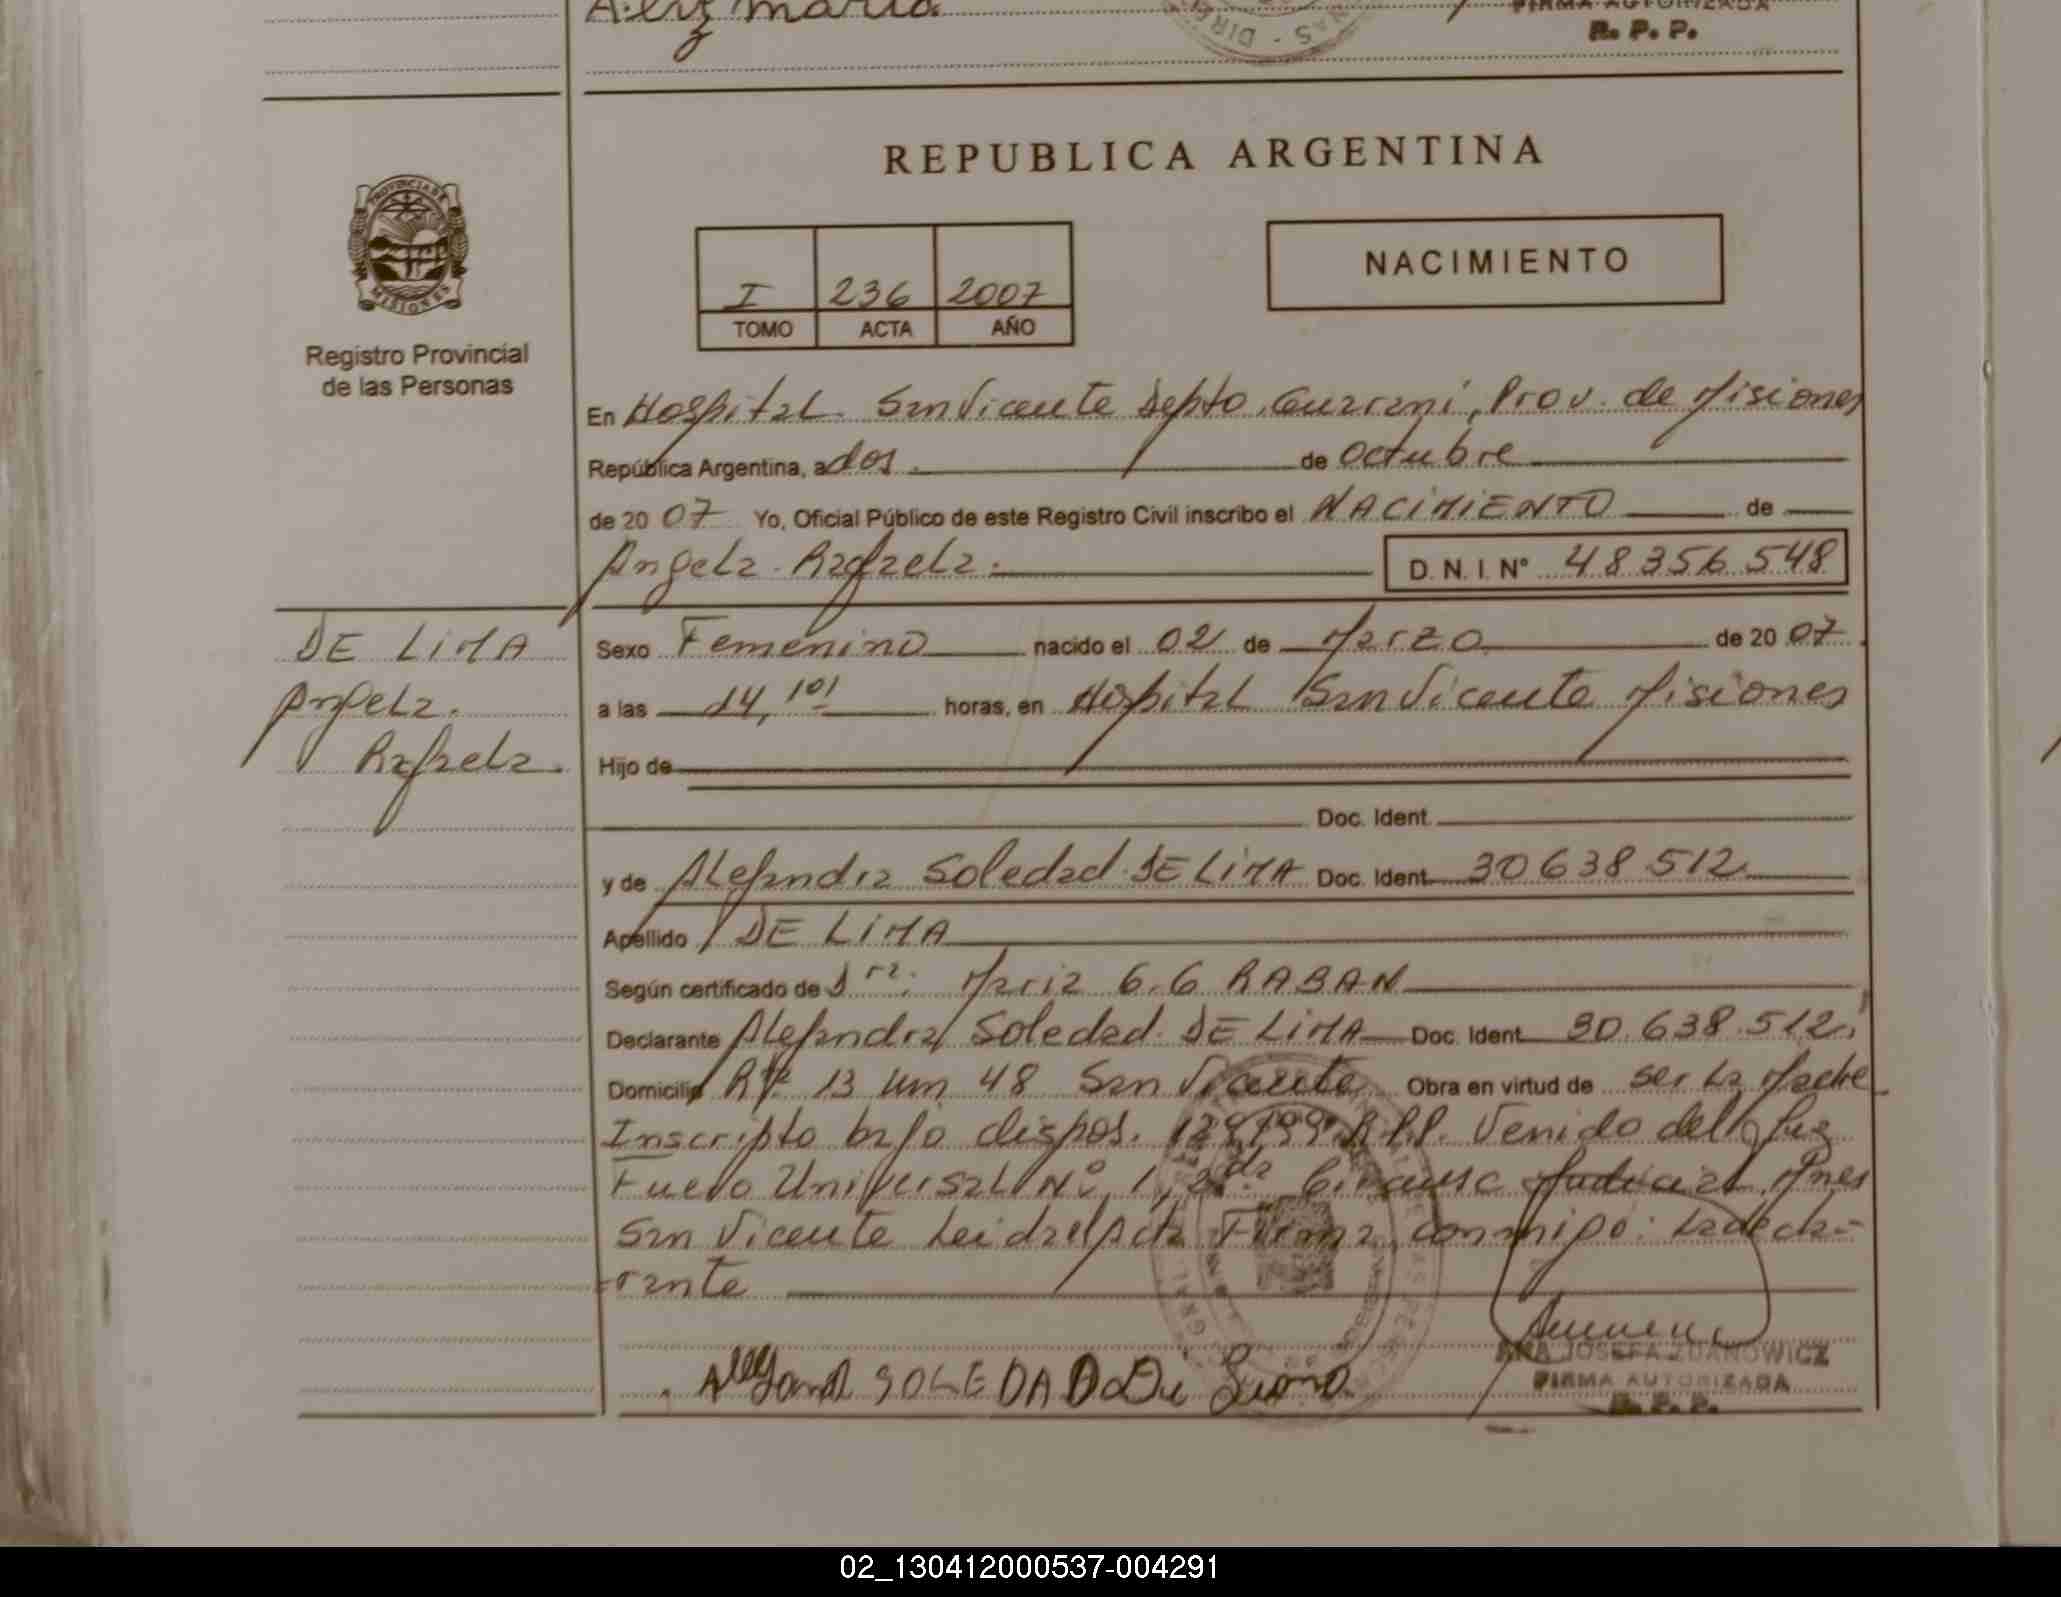 Aliz Maria
FIRMA AUTORIZADA
R. P. P.
PROVINCIA DE
MISIONES
Registro Provincial
de las Personas
REPUBLICA ARGENTINA
I 236 2007
TOMO ACTA AÑO
NACIMIENTO
En Hospital San Vicente Depto Guarani, Prov. de Misiones
República Argentina, a dos de Octubre
de 2007 Yo, Oficial Público de este Registro Civil inscribo el NACIMIENTO de
Angela Rafaela. D. N. I. N° 48 356 548
DE LIMA
Angela.
Rafaela.
Sexo Femenino nacido el 02 de Marzo de 2007
a las 14,10 horas, en Hospital San Vicente Misiones
Hijo de
Doc. Ident.
y de Alejandra Soledad DE LIMA Doc. Ident. 30 638 512
Apellido DE LIMA
Según certificado de Dra. Maria G. G RABAN
Declarante Alejandra Soledad DE LIMA Doc. Ident. 30.638.512.
Domicilio Rta 13 km 48 San Vicente Obra en virtud de ser la Madre
Inscripto bajo dispos. R.P.P. Venido del Juz
Fuero Universal N° 1, 2da Circunsc Judicial Mnes
San Vicente Leida el Acta Firma conmigo: la decla-
rante
SOLEDAD
ANA JOSEFA ZDANOWICZ
FIRMA AUTORIZADA
R. P. P.
02_130412000537-004291